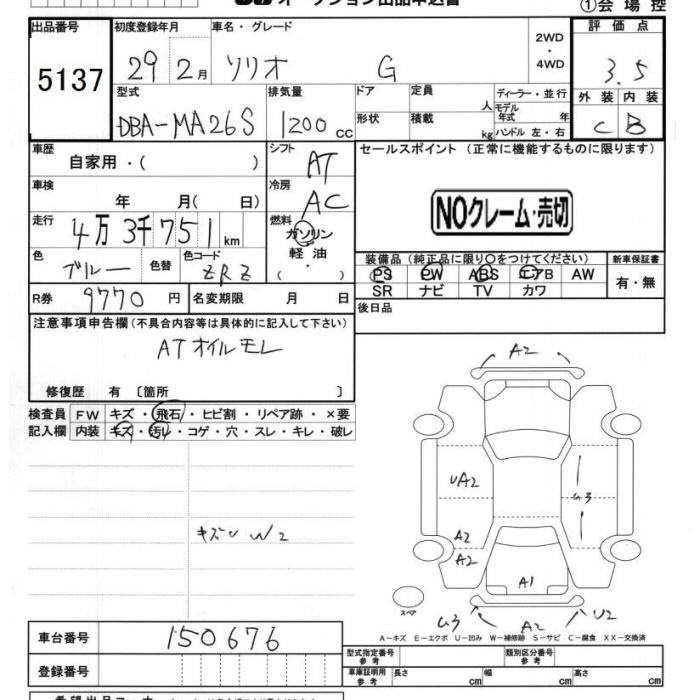 オークション出品申込書 ①会場控
出品番号 初度登録年月 車名・グレード 2WD・4WD 評価点
5137 29 2月 ソリオ G 3.5
型式 排気量 ドア 定員 人 ディーラー・並行 外装 内装
DBA-MA26S 1200cc 形状 積載 kg モデル年式 年 ハンドル 左・右 C B
車歴 シフト セールスポイント (正常に機能するものに限ります)
自家用・( ) AT
車検 冷房
年 月( 日) AC NOクレーム・売切
走行 燃料
4万3千751km ガソリン
軽油
・( )
色 色替 色コード 装備品(純正品に限り○をつけてください) 新車保証書
ブルー ZRZ PS PW ABS エアB AW 有・無
SR ナビ TV カワ
R券 9770円 名変期限 月 日 後日品
注意事項申告欄(不具合内容等は具体的に記入して下さい)
ATオイルモレ
修復歴 有 〔箇所 〕
検査員 FW キズ・飛石・ヒビ割・リペア跡・×要
記入欄 内装 キズ・汚れ・コゲ・穴・スレ・キレ・破レ
A2
UA2
A2
A2
A1
W2
スペア
A2
U2
A-キズ E-エクボ U-凹み W-補修跡 S-サビ C-腐食 XX-交換済
車台番号 150676
登録番号
型式指定番号 参考 類別区分番号 参考
車庫証明用 参考 長さ cm 幅 cm 高さ cm
希望出品コーナー